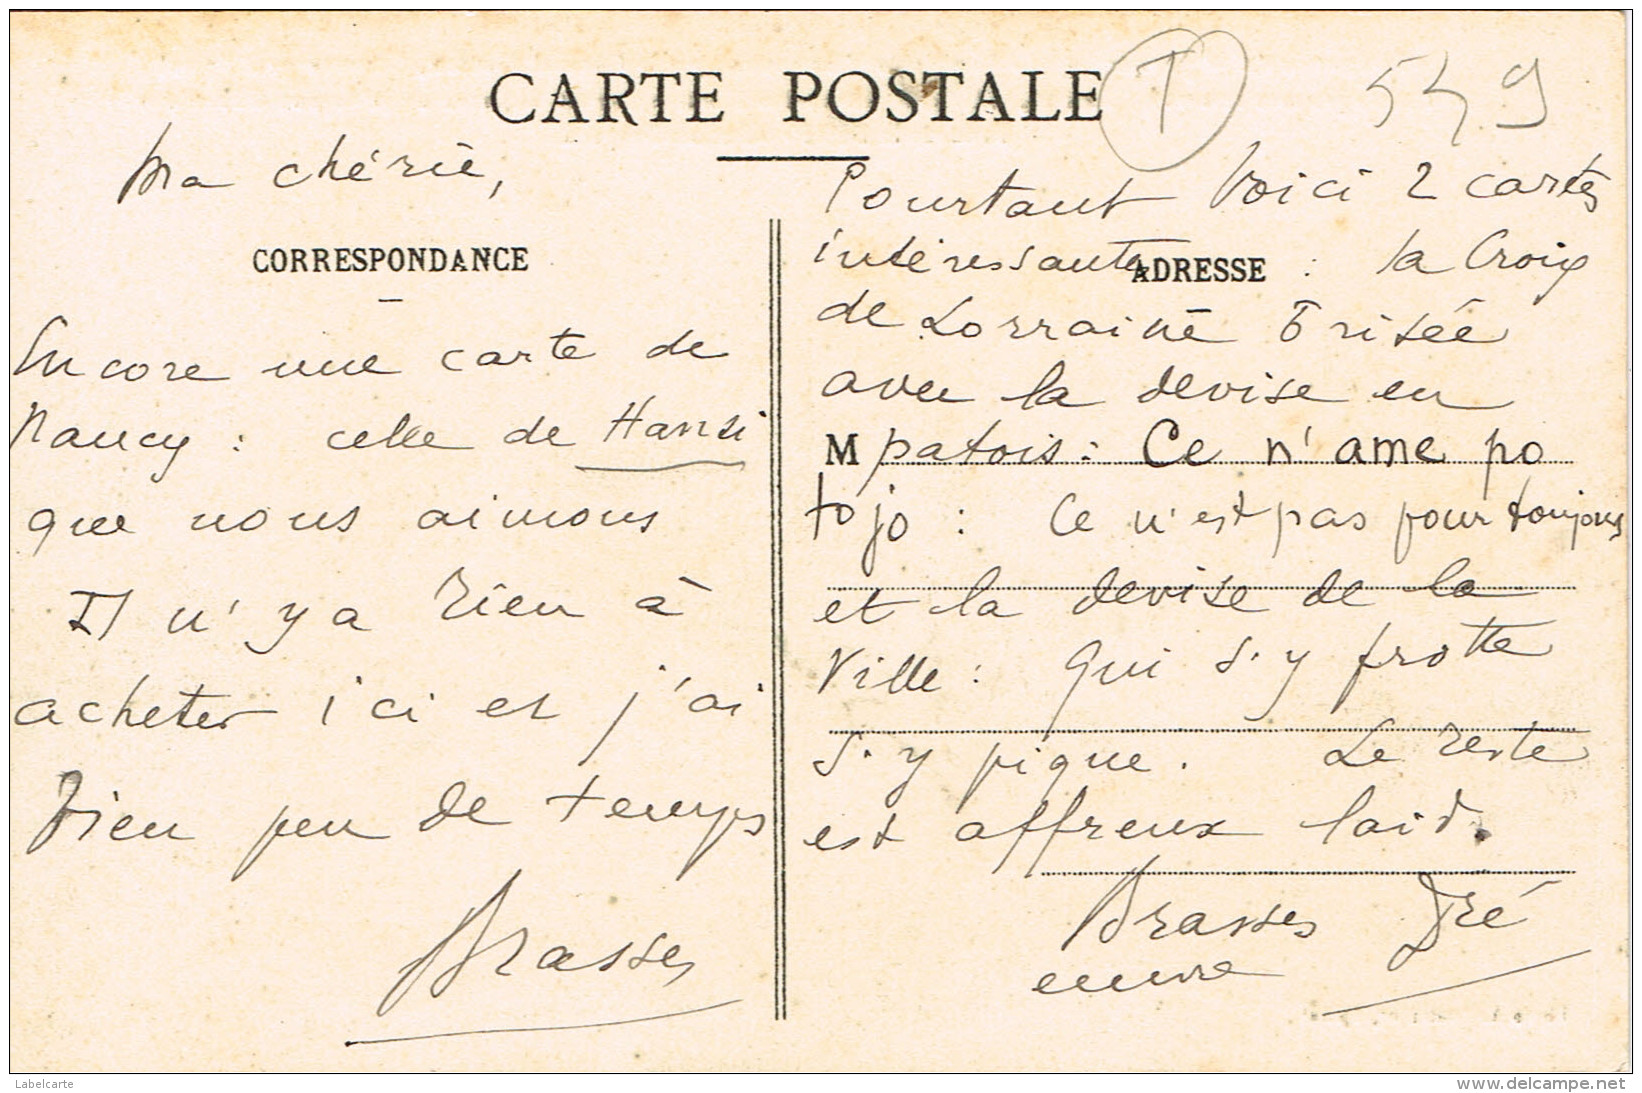 CARTE POSTALE
T
549
Ma chérie,
CORRESPONDANCE
Encore une carte de
Nancy : celle de Hansi
que nous aimons
Il n'y a rien à
acheter ici et j'ai
bien peu de temps
Brasses
Pourtant voici 2 cartes
intéressantes : la Croix
ADRESSE
de Lorraine brisée
avec la devise en
M patois : Ce n'ame po
tojo : Ce n'est pas pour toujours
et la devise de la
Ville : Qui s'y frotte
s'y pique. Le reste
est affreux laid.
Brasses Dré
Labelcarte
www.delcampe.net